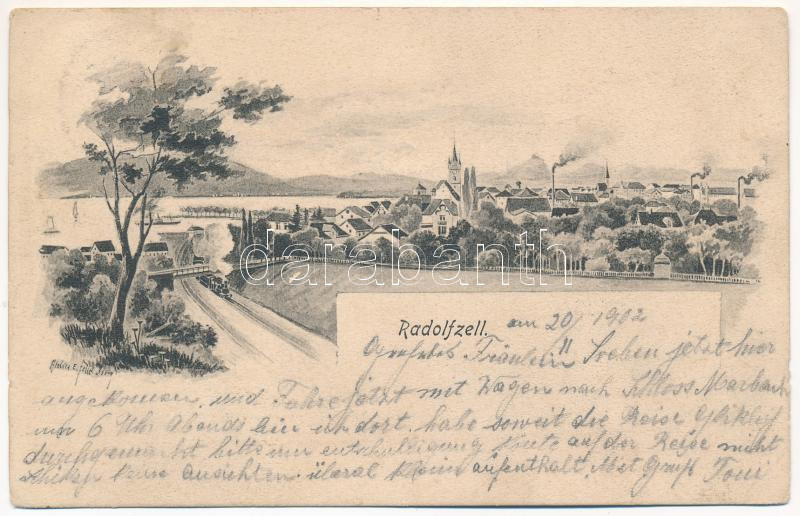 Radolfzell. am 20/ 1902
Fräulein" Soeben jetzt hier
angekommen, und Fahre jetzt mit Wagen nach Schloss Marbach
um 6 Uhr Abends bin ich dort, habe soweit die Reise Gliklich
durchgemarkt bitte um entschulligung könte auf der Reise nicht
schiken keine Ansichten, überal kleine aufenthalt. Mit Gruß Toni
darabanth